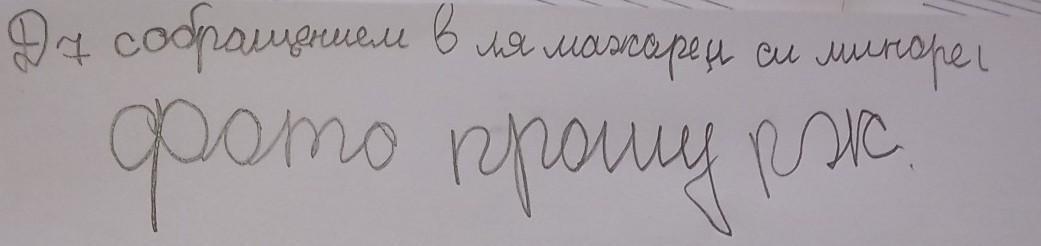 Д7 собращением в ля мажореи си минорег
фото прошу рж.